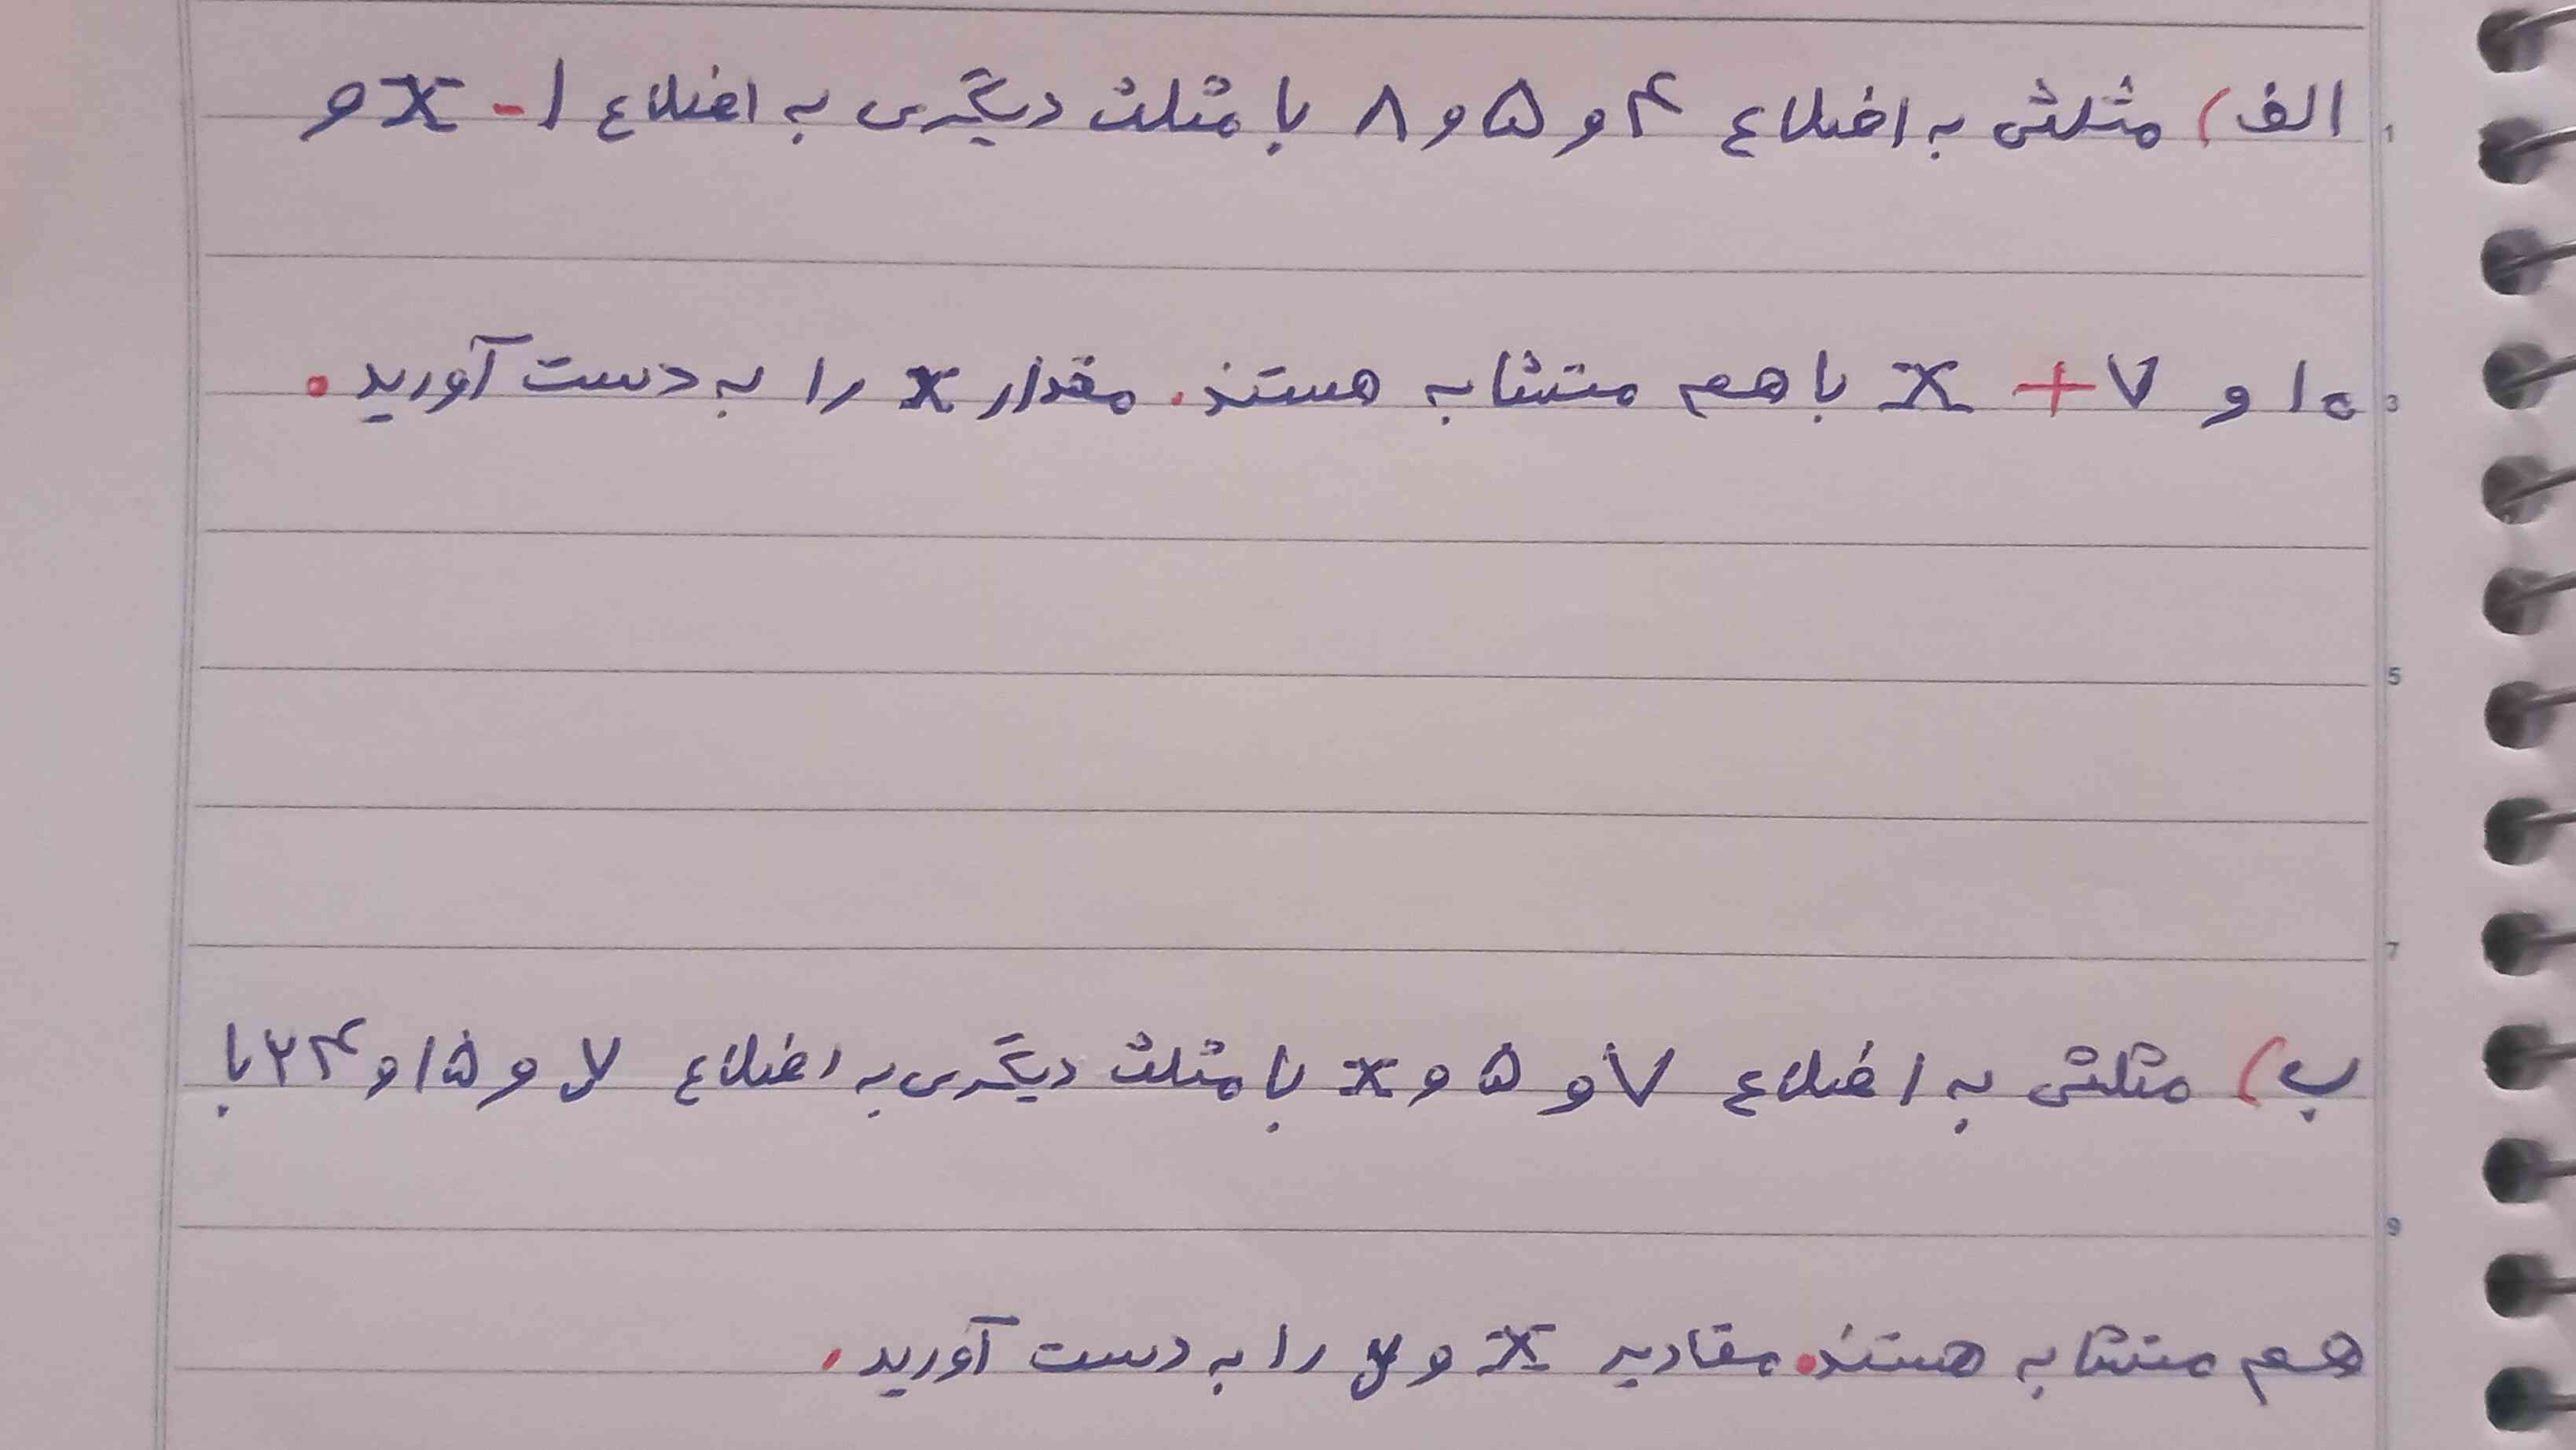 الف) مثلثی به اضلاع ۴ و ۵ و ۸ با مثلث دیگری به اضلاع x - ۱ و
۱۰ و x + ۷ با هم متشابه هستند. مقدار x را به دست آورید.
ب) مثلثی به اضلاع ۷ و ۵ و x با مثلث دیگری به اضلاع y و ۱۵ و ۲۴ با
هم متشابه هستند. مقادیر x و y را به دست آورید.
1
3
5
7
9